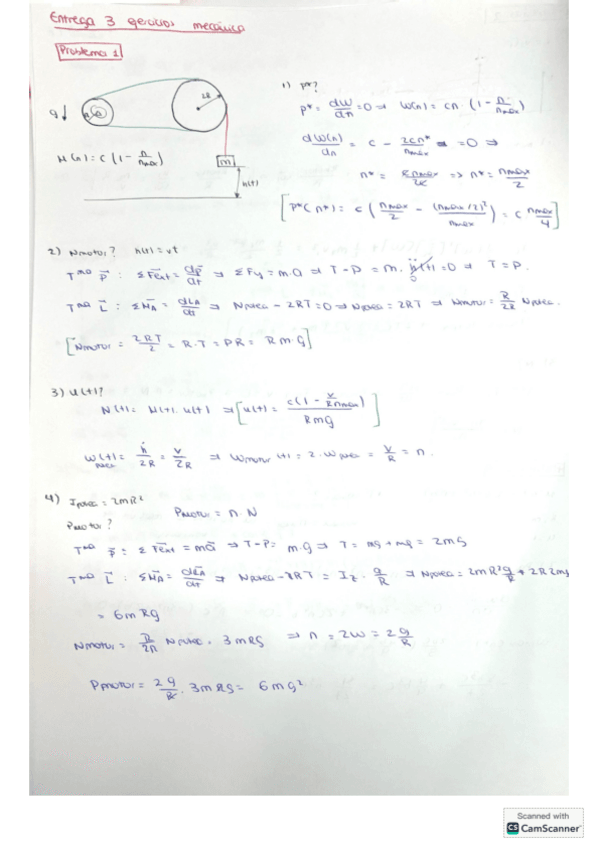 Entrega 3 ejercicios mecánica
Problema 1
g↓
R
2R
N(n) = c (1 - n/nmáx)
m
h(t)
1) P*?
P* = dW/dn = 0 ⇒ W(n) = cn · (1 - n/nmáx)
dW(n)/dn = c - 2cn*/nmáx = 0 ⇒
n* = nmáx/2
[P*(n*) = c (nmáx/2 - (nmáx/2)²/nmáx) = c nmáx/4]
2) Nmotor? h(t) = vt
Tmo P⃗ : ΣF⃗ext = dp⃗/dt ⇒ ΣFy = m.a ⇒ T - P = m. ḧ(t) = 0 ⇒ T = P.
0
Tmo L⃗ : ΣM⃗A = dL⃗A/dt ⇒ Npolea - 2RT = 0 ⇒ Npolea = 2RT ⇒ Nmotor = R/2R Npolea.
[Nmotor = 2RT/2 = R·T = PR = Rmg]
3) u(t)?
N(t) = N(t). u(t) ⇒ [u(t) = c(1 - v/Rnmax) / Rmg]
W(t) = ḣ/2R = v/2R ⇒ Wmotor (t) = 2. Wpolea = v/R = n.
polea
4) Ipolea = 2mR²
Pmotor = n. N
Pmotor?
Tmo P⃗ = ΣF⃗ext = ma⃗ ⇒ T - P = m·g ⇒ T = mg + mg = 2mg
Tmo L⃗ : ΣM⃗A = dL⃗A/dt ⇒ Npolea - 2RT = Iz · g/R ⇒ Npolea = 2mR² g/R + 2R2mg
= 6mRg
Nmotor = R/2R Npolea = 3mRg ⇒ n = 2w = 2 g/R
Pmotor = 2g/R · 3mRg = 6mg²
Scanned with
CS CamScanner